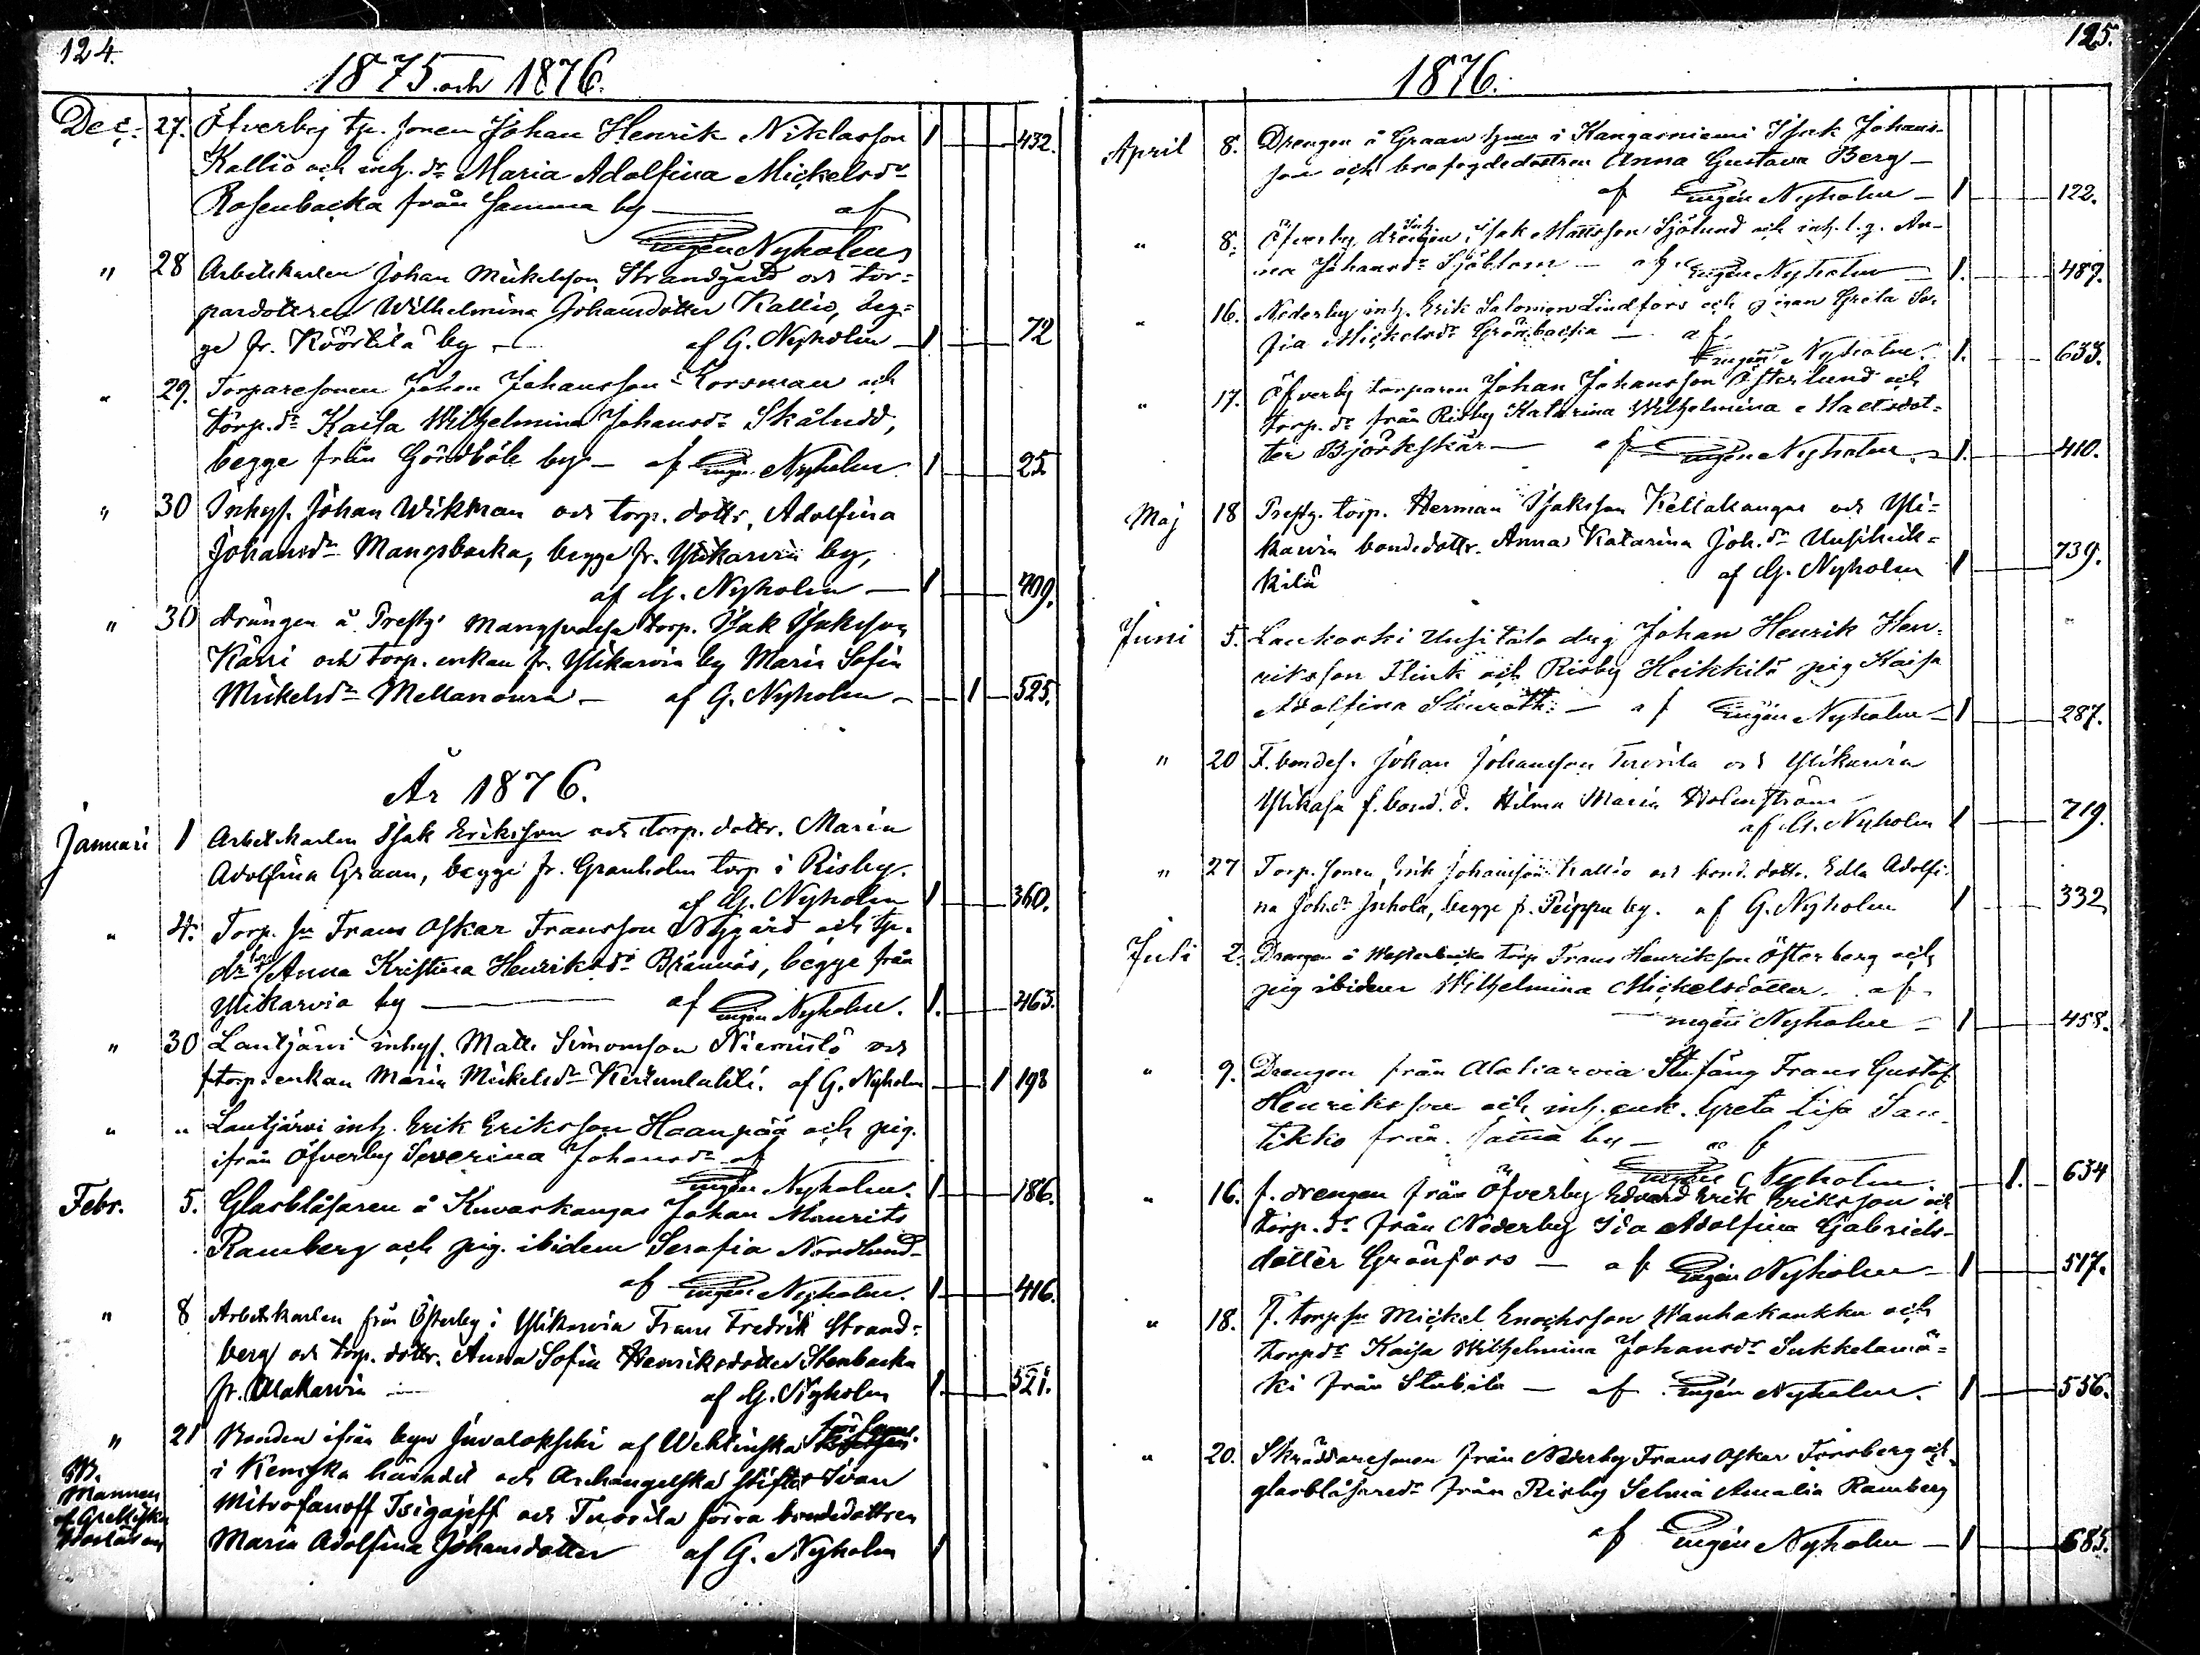 124.
1875 och 1876.
Dec. 27. Öfverby tp. sonen Johan Henrik Niklasson 1 432.
Kallio och inh. dr Maria Adolfina Mickelsdr
Rosenbacka från samma by — af
Eugén Nyholm
" 28 Arbetskarlen Johan Mickelsson Strandgård och tor-
pardotteren Wilhelmina Johansdotter Kallio, beg-
ge fr. Köörtilä by — af G. Nyholm — 1 72
" 29. Torparesonen Johan Johansson Korsman och
torp. dr Kaisa Wilhelmina Johansdr Skåludd,
begge från Gördböle by — af Eugén Nyholm. 1 25
" 30 Inhys. Johan Wikman och torp. dottr. Adolfina
Johansdr Mangsbacka, begge fr. Ylikarvia by,
af G. Nyholm — 1 499.
" 30 drängen å Prestg. torp. Isak Isaksson
Karri och torp. enkan fr. Ylikarvia by Maria Sofia
Mickelsdr Mellanoura — af G. Nyholm — 1 525.
År 1876.
Januari 1 Arbetskarlen Isak Eriksson och torp. dottr. Maria
Adolfina Graan, begge fr. Granholm torp i Risby.
af G. Nyholm 1 360.
" 4. Torp. sn Frans Oskar Fransson Nygård och tp.
dr Anna Kristina Henriksdr Brännäs, begge från
Ylikarvia by — af Eugén Nyholm. 1. 463.
" 30 Lautjärvi inhys. Matts Simonsson Niemistö och
f torp. enkan Maria Mickelsdr af G. Nyholm — 1 198
" " Lautjärvi inh. Erik Eriksson Haanpää och pig.
ifrån Öfverby Severina Johansdr af
Eugén Nyholm. 1 186.
Febr. 5. Glasblåsaren å Kuvaskangas Johan Maurits
Ramberg och pig. ibidem Serafia Nordlund
af Eugén Nyholm. 1 416.
" 8 Arbetskarlen från Österby i Ylikarvia Frans Fredrik Strand-
berg och torp. dottr. Anna Sofia Henriksdotter Stenbacka
fr. Alakarvia — af G. Nyholm 1. 521.
" 21 Bonden ifrån byn af
i Kemska häradet och Archangelska stiftet Ivan
Mitrofanoff Tsigajeff och Tuorila förra bondedottren
Maria Adolfina Johansdotter af G. Nyholm 1
NB.
Mannen
af Grekiska
125.
1876.
April 8. Drengen å Graan i Kangasniemi Isak Johans-
son och brofogdedottren Anna Gustava Berg —
af Eugén Nyholm — 1 122.
" 8. Öfverby drengen Isak Mattsson Sjölund och inh. l. g. An-
na Johansdr Sjöblom — af Eugén Nyholm — 1. 487.
" 16. Nederby inh. Erik Salomon Lindfors och pigan Greta So-
fia Mickelsdr Grönbacka — af
Eugén Nyholm. 1. 633.
" 17. Öfverby torparen Johan Johansson Österlund och
torp. dr från Risby Katarina Wilhelmina Matsdot-
ter Björkskär — af Eugén Nyholm. 1. 410.
Maj 18 Prestg. torp. Herman Isaksson Kellakangas och Yli-
karvia bondedottr. Anna Katarina Joh. dr Uusiheik-
kilä af G. Nyholm 1 739.
Juni 5. Lankoski Uusitalo dreg Johan Henrik Hen-
riksson Flink och Risby Heikkilä pig Kaisa
Adolfina Stenroth — af Eugén Nyholm — 1 287.
" 20 F. bondes. Johan Johansson Tuorila och Ylikarvia
Ylikasa f. bond. d. Hilma Maria Holmström
af G. Nyholm 1 719.
" 27 Torp. sonen Erik Johansson Kallio och bond. dottr. Edla Adolfi-
na Joh. dr Juhola, begge fr. Peippu by. af G. Nyholm 1 332
Juli 2. Drengen å Westerbacka torp Frans Henriksson Österberg och
pig ibidem Wilhelmina Mickelsdotter af
Eugén Nyholm — 1 458.
" 9. Drengen från Alakarvia Frans Gustaf
Henriksson och inh. enk. Greta Lisa San-
tikko från samma by — af
Eugén Nyholm. 1. 634
" 16. f. drengen från Öfverby Edvard Erik Eriksson och
torp. dr från Nederby Ida Adolfina Gabriels-
dotter Granfors — af Eugén Nyholm — 1 517.
" 18. F. torp sn Mickel Enochsson Wanhakaukku och
torp dr Kaisa Wilhelmina Johansdr Sukkelamä-
ki från Stubila — af Eugén Nyholm. 1 556.
" 20. Skräddaresonen från Nederby Frans Oskar Forsberg och
glasblåsaredr från Risby Selma Amalia Ramberg
af Eugén Nyholm — 1 685.